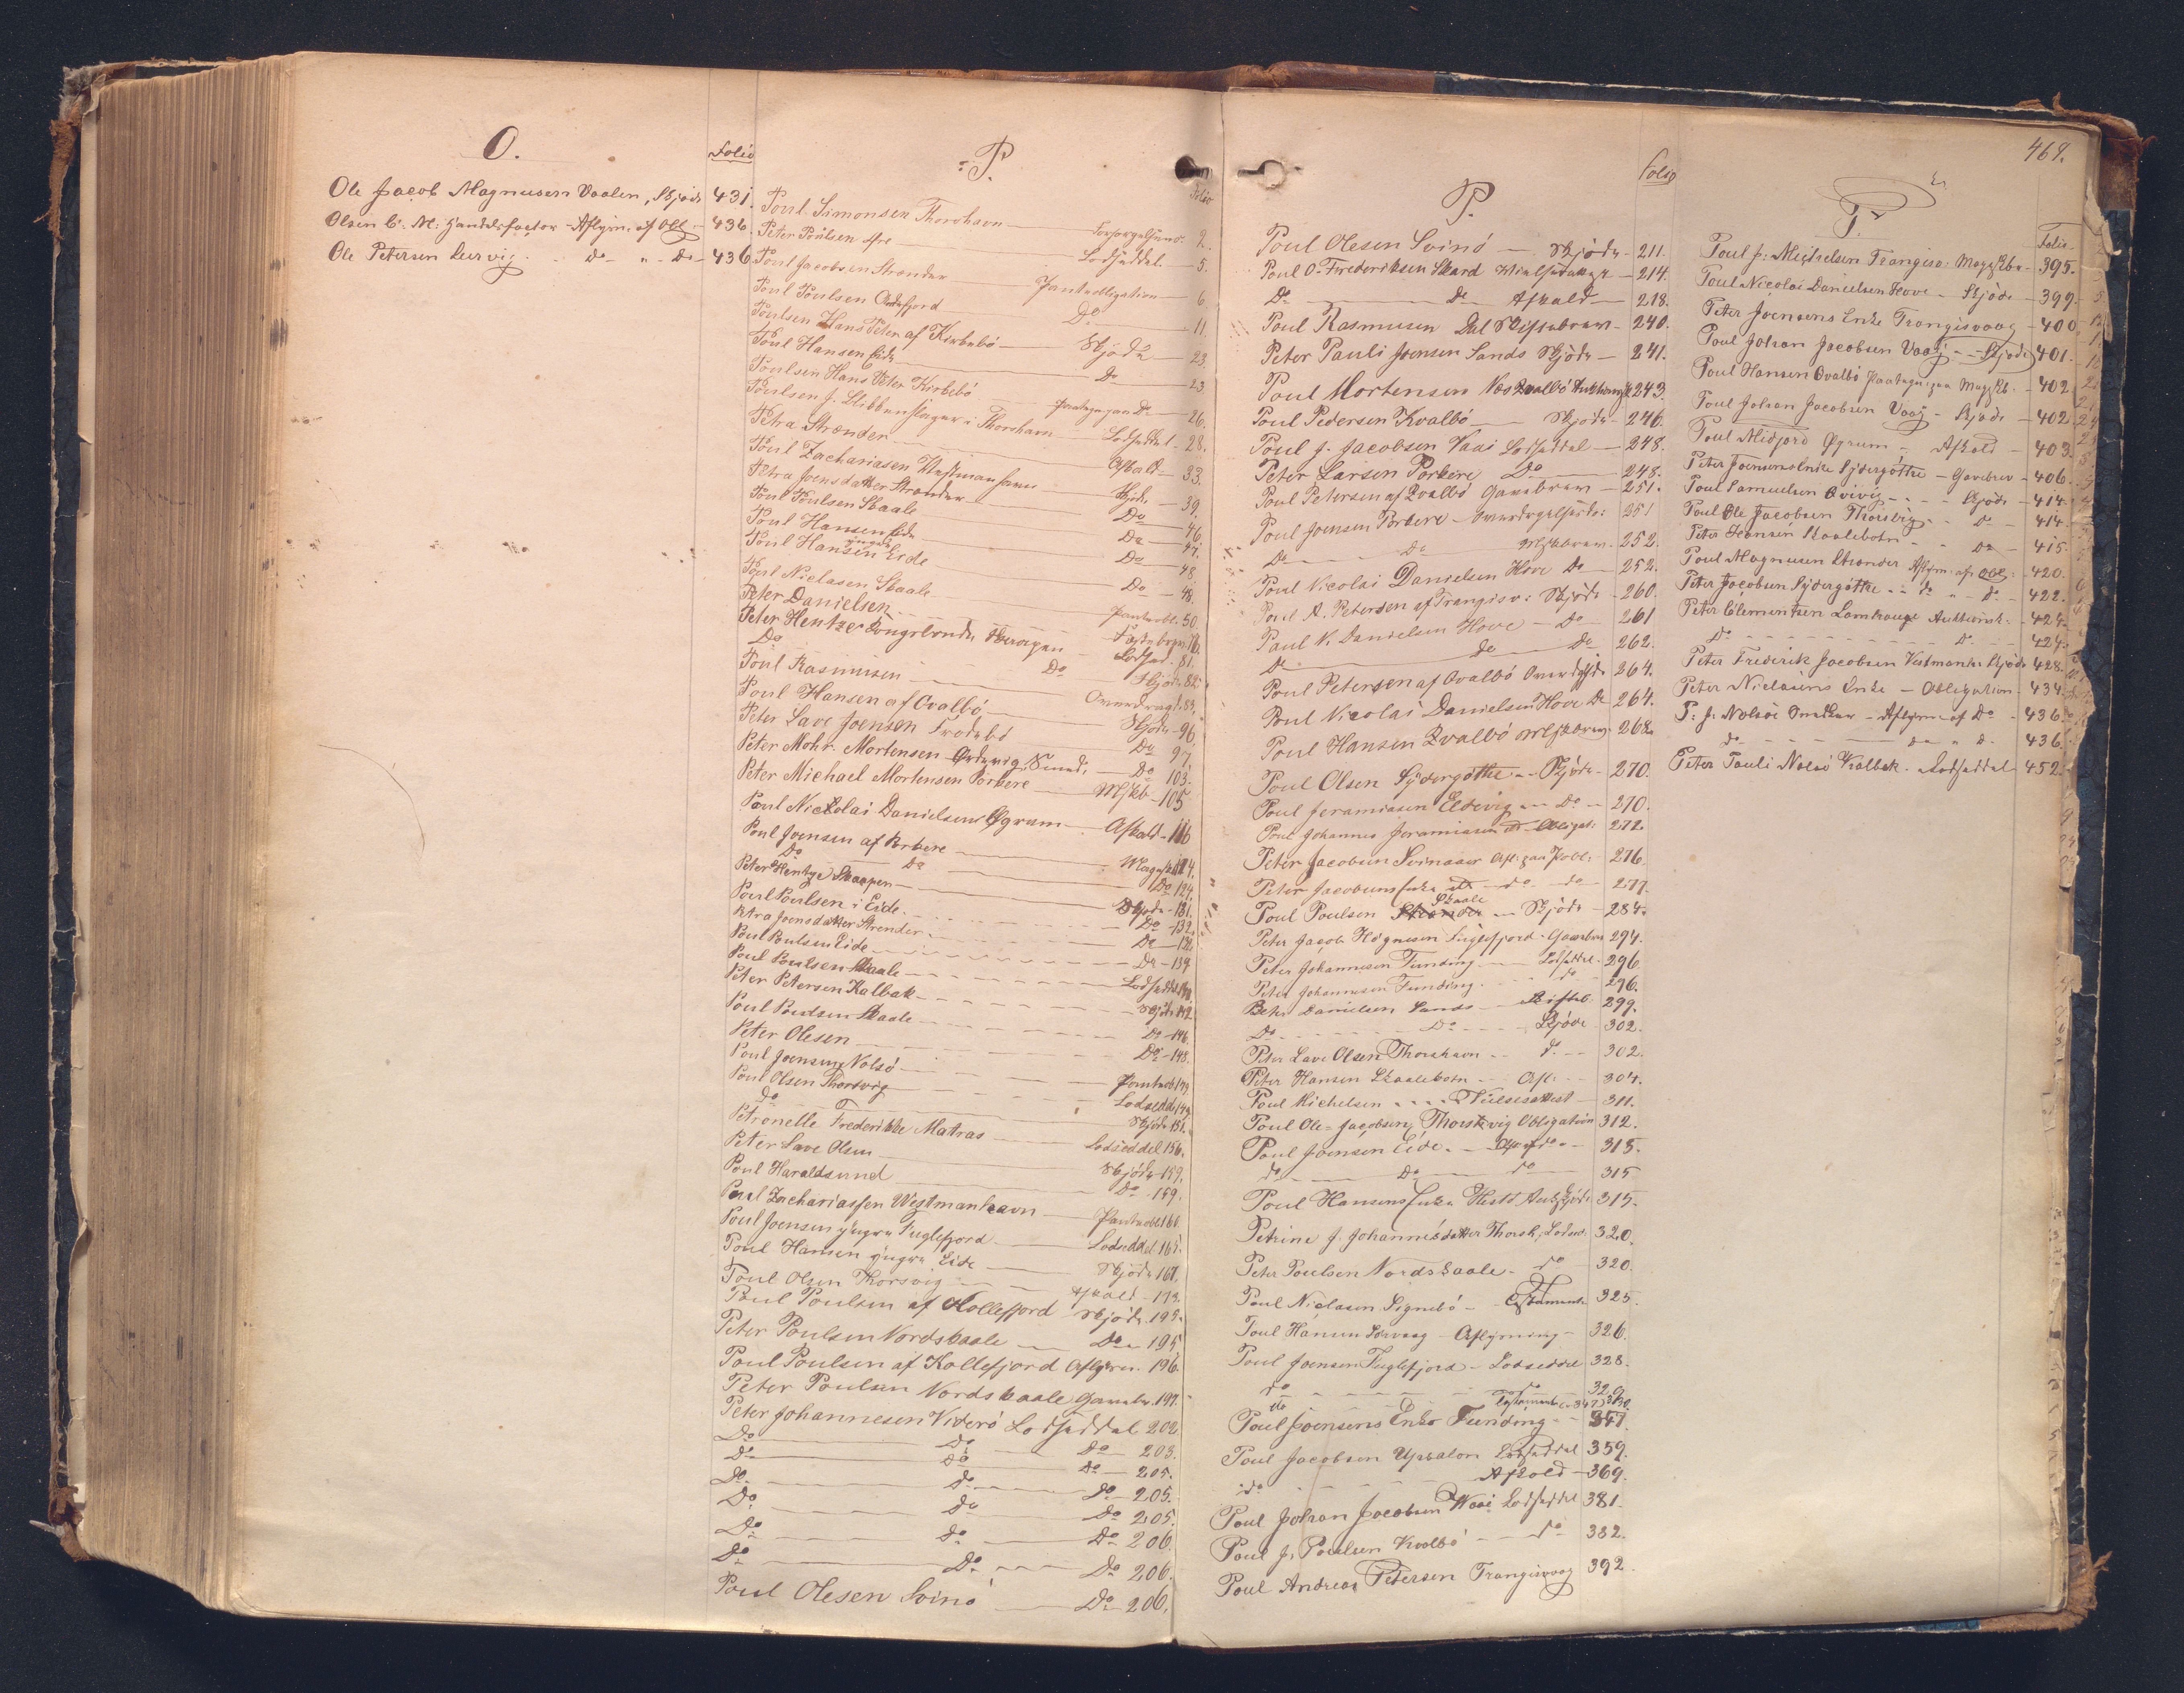 O.
Folio
Ole Jacob Magnusen Vaalen, Skjøde 431.
Olsen C. M. Handelsfactor - Aflysn: af Obl - 436.
Ole Petersen Leervig. - Do - " - Do - 436
P.
Folio
Poul Simonsen Thorshavn — 2.
Peter Poulsen — Lodseddel — 5.
Poul Jacobsen Strender — Panteobligation — 6
Poul Poulsen — Do — 11.
Poulsen Hans Peter af Kirkebø — Skjøde — 23.
Poul Hansen Eide — Do — 23
Poulsen Hans Peter Kirkebø — Do — 26.
Poulsen J. i Thorshavn — Lodseddel — 28.
Petra Strender — Afkald — 33.
Poul Zachariasen Westmanhavn — Skjøde — 39.
Petra Joensdatter Strender — Do — 46.
Poul Poulsen Skaale — Do — 47.
Poul Hansen Eide — Do — 48.
Poul Hansen yngre Eide — Do — 48.
Poul Niclasen Skaale — Panteobl. 50
Peter Danielsen —
Peter Hentze Kongsbonde Skaapen — Lodsed. 81.
Do — Do — Skjøde 82.
Poul Rasmusen — Overdrag. 83.
Poul Hansen af Qvalbø — Skjøde — 96
Peter Lave Joensen Frodebø — Do — 97.
Peter Mohr Mortensen Ørdevig, Smed, — Do — 103.
Peter Michael Mortensen Porkere — 105
Poul Nickolai Danielsen Øgrum — Afkald — 116
Poul Joensen af Porkere — 124.
Do — Do — Do 124.
Peter Hentze Skaapen — Skjøde — 131.
Poul Poulsen i Eide — Do — 132.
Petra Joensdatter Strender — Do —
Poul Poulsen Eide — Do — 139
Poul Poulsen Skaale — Lodseddel
Peter Petersen Kalbak — Skjøde 142.
Poul Poulsen Skaale — Do — 146.
Peter Olesen — Do — 148.
Poul Joensen, Nolsø — Panteob. 149
Poul Olsen Thorsvig — Lodsedd. 149
do — Skjøde 151.
Petronelle Frederikke Matras — Lodseddel 156.
Peter Lave Olsen — Skjøde 159.
Poul Haraldsund — Do — 159.
Poul Zachariassen Westmanhavn — Panteobl. 160.
Poul Joensen yngre Fuglefjord — Lodseddel 165.
Poul Hansen yngre Eide — Skjøde 167.
Poul Olsen Thorsvig — Afkald — 173.
Poul Poulsen af Kollefjord — Skjøde 195.
Peter Poulsen Nordskaale — Do — 195
Poul Poulsen af Kollefjord Aflysn. 196.
Peter Poulsen Nordskaale Gavebr. 197.
Peter Johannesen Viderø Lodseddel 202
Do — Do — Do — 203.
Do — Do — Do — 205.
Do — Do — Do 205.
Do — Do — Do 205.
Do — Do — Do 206.
Do — Do — Do 206.
Poul Olesen Svinø — Do 206.
P.
Folio
Poul Olesen Svinø — Skjøde — 211.
Poul O. Frederiksen Skard — 214.
Do — Do Afkald — 218.
Poul Rasmusen Dal Skiftebrev — 240.
Peter Pauli Joensen Sands Skjøde — 241.
Poul Mortensen Næs Qvalbø 243.
Poul Pedersen Kvalbø — Skjøde — 246.
Poul J. Jacobsen Vaai Lodseddel — 248.
Peter Larsen Porkere Do — 248.
Poul Petersen af Qvalbø Gavebrev — 251.
Poul Joensen Porkere — 251
Do — Do — 252.
Poul Nicolai Danielsen Hove Do — 252.
Poul A. Petersen af Trangisv: Skjøde — 260.
Poul N. Danielsen Hove — Do — 261
Do — Do — Do — 262.
Poul Petersen af Qvalbø 264.
Poul Nicolai Danielsen Hove Do 264.
Poul Hansen Qvalbø 268
Poul Olsen Sydergøthe — Skjøde — 270.
Poul Jeramiasen Eldevig — Do — 270.
Poul Johannes Jeramiasen Obligat: 272.
Peter Jacobsen Svinaaer 276.
Peter Jacobsens Enke — do — do — 277.
Poul Poulsen Skaale — Skjøde — 284.
Peter Jacob Høgnesen Fuglefjord — Gavebrev 294.
Peter Johannesen Funding — Lodseddel 296.
Peter Johannesen Funding — do 296.
Peter Danielsen Sands — Skifteb. 299.
Do — Do — Skjøde 302.
Peter Lave Olsen Thorshavn — do — 302.
Peter Hansen Skaalebotn — Afl: — 304.
Poul Michelsen — 311.
Poul Ole Jacobsen, Thorsvig Obligation 312.
Poul Joensen Eide — 315.
do — Do — do — 315
Poul Hansens Enke 315.
Petrine J. Johannesdatter Thorsh, Lodsed. 320.
Peter Poulsen Nordskaale — do — 320.
Poul Niclasen Signebø — Testamente 325.
Poul Hansen Sørvaag — Aflysning — 326.
Poul Joensen Fuglefjord — Lodseddel 328.
do — do — 329.
Poul Joensens Enke Funding — 347.
Poul Jacobsen Upsalon Lodseddel 359.
do — Afkald — 369.
Poul Johan Jacobsen Waai Lodseddel 381.
Poul J. Poulsen Kvalbø — do — 382.
Poul Andreas Petersen Trangisvaag 392.
469.
P.
Folio.
Poul J: Michelsen Trangisv: — 395.
Poul Nicolai Danielsen Hove — Skjøde — 399.
Peter Joensens Enke Trangisvaag — 400
Poul Johan Jacobsen Vaag — Skjøde 401.
Poul Hansen Qvalbø — 402
Poul Johan Jacobsen Vaag — Skjøde — 402
Poul Midjord Øgrum, — Afkald — 403.
Peter Joensens Enke Sydergøthe — Gavebrev — 406.
Poul Samuelsen Qvivig — Skjøde — 414.
Poul Ole Jacobsen Thorsvig — Do — 414.
Peter Hansen Skaalebotn — Do — 415.
Poul Magnusen Strender Aflysn: af Obl: — 420.
Peter Jacobsen Sydergøthe — do " — Do — 422.
Peter Clementsen Lamhauge — 424.
Do — Do — 424.
Peter Frederik Jacobsen Vestmanh: Skjøde 428.
Peter Niclasens Enke — Obligation — 434.
P: J. Nolsøe — Aflysn: af Do — 436.
do — do " Do — 436.
Peter Pauli Nolsø Kalbak — Lodseddel 452.